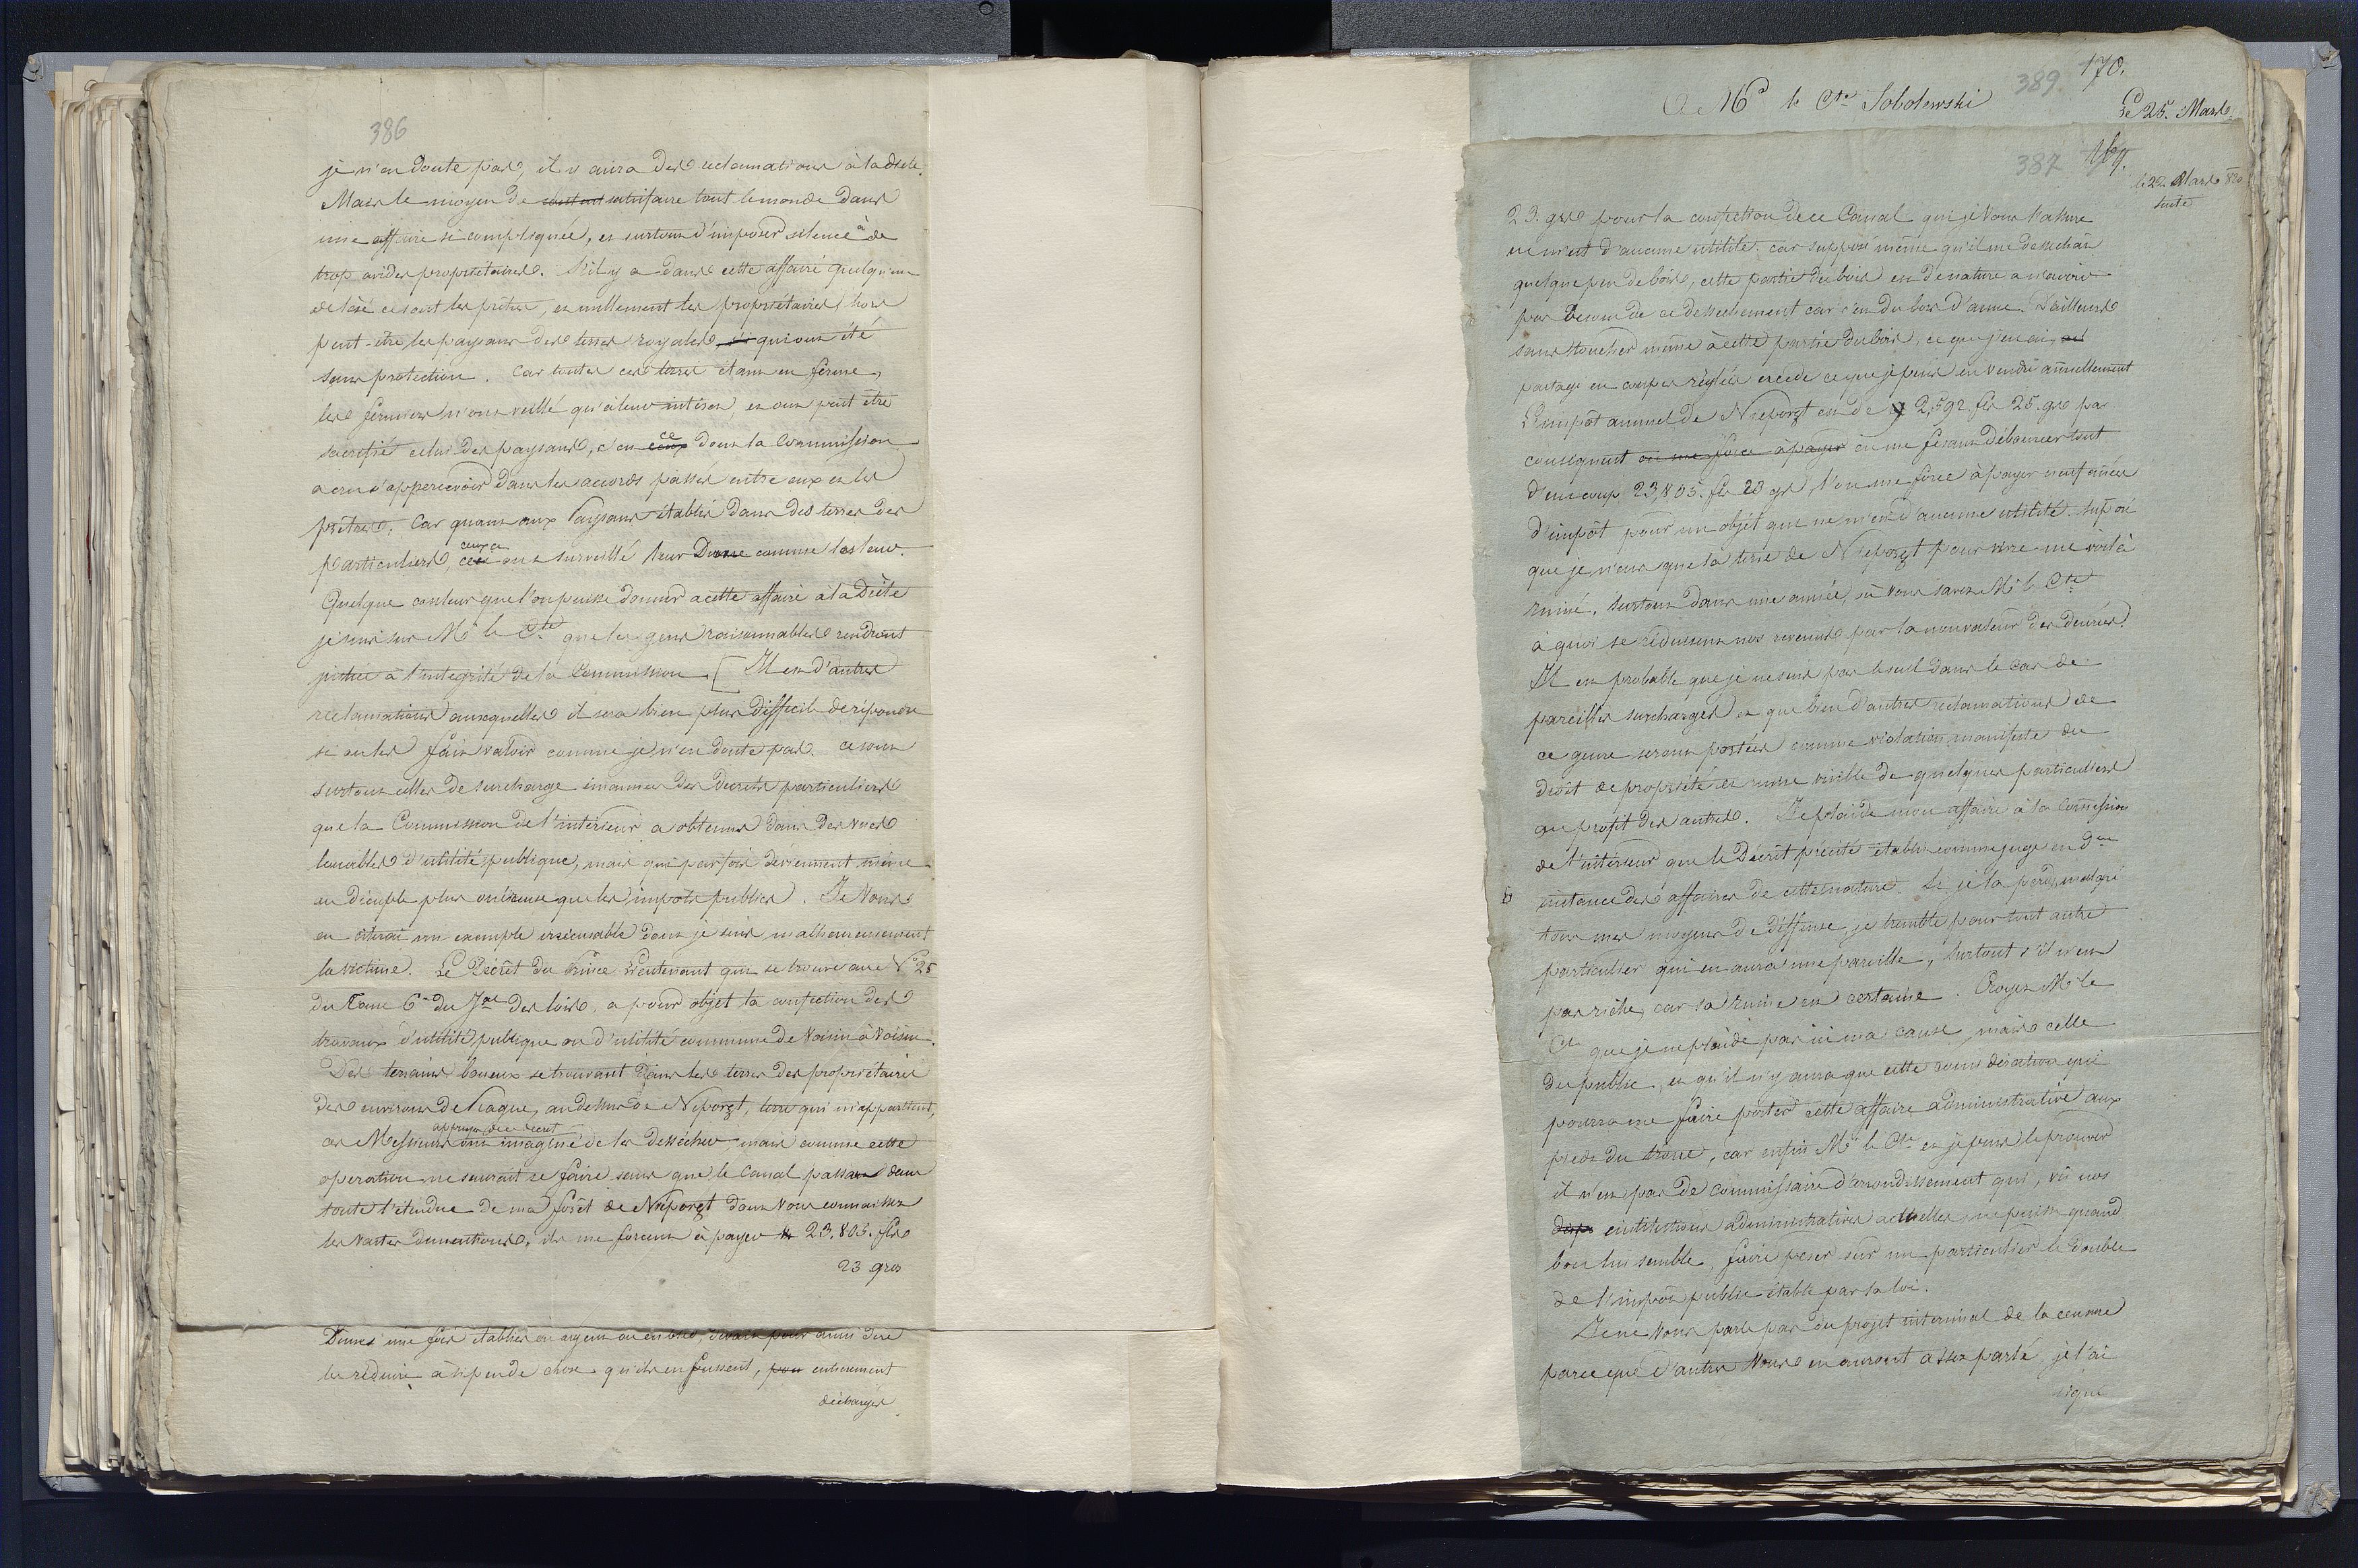 386
je n'en doute pas, il y aura des reclamations à la diete.
Mais le moyen de satisfaire tout le monde dans
une affaire si compliquée, et surtout d'imposer silence à de
trop avides propriétaires. S'il y a dans cette affaire quelqu'un
de lésé ce sont les prêtres, et nullement les propriétaires, hors
peut-être les paysans des terres royales qui ont été
sans protection. Car toutes ces terres étant en ferme,
les fermiers n'ont veillé qu'à leur intéret, et ont peut être
sacrifié celui des paysans, c'est ce dont la Commission
a cru s'appercevoir dans les accords passés entre eux et les
prêtres. Car quant aux Paysans établis dans des terres des
particuliers, ceux ci ont surveillé leur Dixme comme la leur.
Quelque couleur que l'on puisse donner a cette affaire à la Diète
je suis sur Mr le Cte que les gens raisonnables rendront
justice à l'integrité de la Commission. [ Il est d'autres
reclamations auxquelles il sera bien plus difficile de repondre
si on les fait valoir comme je n'en doute pas. ce sont
surtout celles de surcharge émanées des Decrets particuliers
que la Commission de l'intérieur a obtenus dans des vues
louables d'utilité publique, mais qui parfois deviennent même
au décuple plus onéreuse que les impots publics. Je Vous
en citerai un exemple irrécusable dont je suis malheureusement
la victime. Le Décret du Prince Lieutenant qui se trouve au No 25
du Tome 6me du Jal des loix, a pour objet la confection des
travaux d'utilité publique ou d'utilité commune de Voisin à Voisin.
Des terrains boueux se trouvant dans les terres des propriétaires
des environs de Prague, au dessus de Nieporęt, terre qui m'appartient,
appuyés de ce decret
ces Messieurs ont imaginé de les dessécher, mais comme cette
operation ne saurait se faire sans que le Canal passat dans
toute l'étendue de ma forêt de Nieporęt dont Vous connaissez
les vastes dimentions, ils me forcent à payer 23,803. fls
23 gros
Dixmes une fois établies en argent ou en bled, devait pour ainsi dire
les réduire à si peu de chose qu'ils en fussent, entierement
déchargés
A Mr le Cte Sobolewski
389. 170.
Le 25. Mars
387 169.
le 22 Mars 820
suite
23. gros pour la confection de ce Canal qui je Vous l'assure
ne m'est d'aucune utilité. car supposé même qu'il me dessechât
quelque peu de bois, cette partie du bois est de nature a n'avoir
pas besoin de ce dessechement car c'est du bois d'aune. D'ailleurs
sans toucher même à cette partie du bois, ce que j'en ai
partagé en coupes réglées excede ce que je puis en vendre annuellement
L'impôt annuel de Nieporęt est de 2,592. fls 25. gros par
conséquent en me fesant débourser tout
d'un coup 23,803. fls 23 gros, l'on me force à payer neuf années
d'impôt pour un objet qui ne m'est d'aucune utilité. Suposé
que je n'eus que la terre de Nieporęt pour vivre me voilà
ruiné, surtout dans une année, où Vous savez Mr le Cte
à quoi se réduisent nos revenus par la nonvaleur des denrées.
Il est probable que je ne suis pas le seul dans le cas de
pareilles surcharges et que bien d'autres reclamations de
ce genre seront portées comme violation manifeste du
droit de propriété et ruine visible de quelques particuliers
au profit des autres. Je plaide mon affaire à la Commission
de l'intérieur que le Décret précité établit comme juge en dre
instance des affaires de cette nature. Si je la perds, malgré
tous mes moyens de déffense, je tremble pour tout autre
particulier qui en aura une pareille, surtout s'il n'est
pas riche, car sa ruine est certaine. Croyez Mr le
Cte que je ne plaide pas ici ma cause, mais celle
du public, et qu'il n'y aura que cette consideration qui
pourra me faire porter cette affaire administrative aux
pieds du trône, car enfin Mr le Cte et je puis le prouver
il n'est pas de commissaire d'arrondissement qui, vû nos
institutions administratives actuelles, ne puisse quand
bon lui semble, faire peser sur un particulier le double
de l'impôt public établi par la loi.
Je ne Vous parle pas du projet interminal de la censure
parce que d'autres Vous en auront assez parlé je l'ai
signé